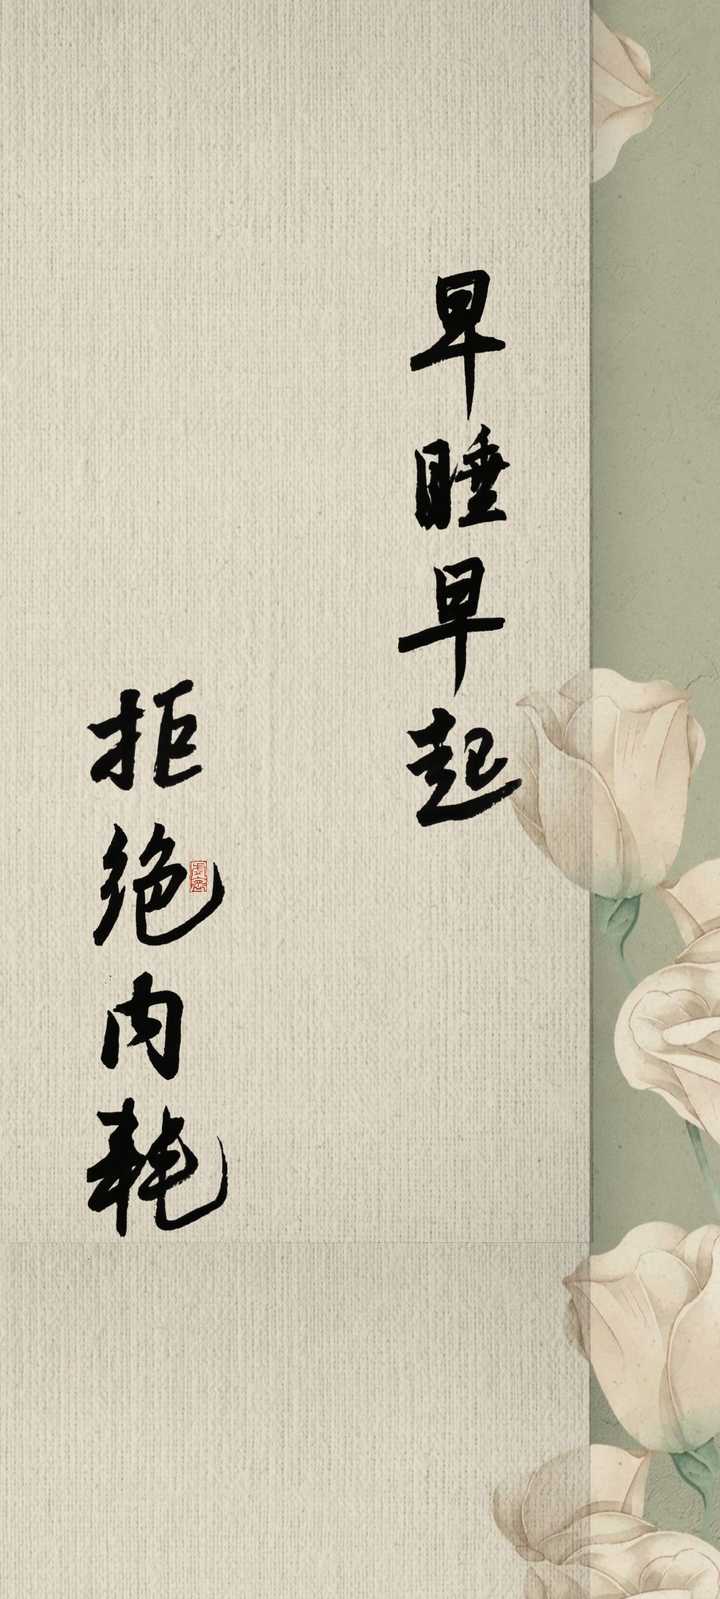 早睡早起
拒绝内耗